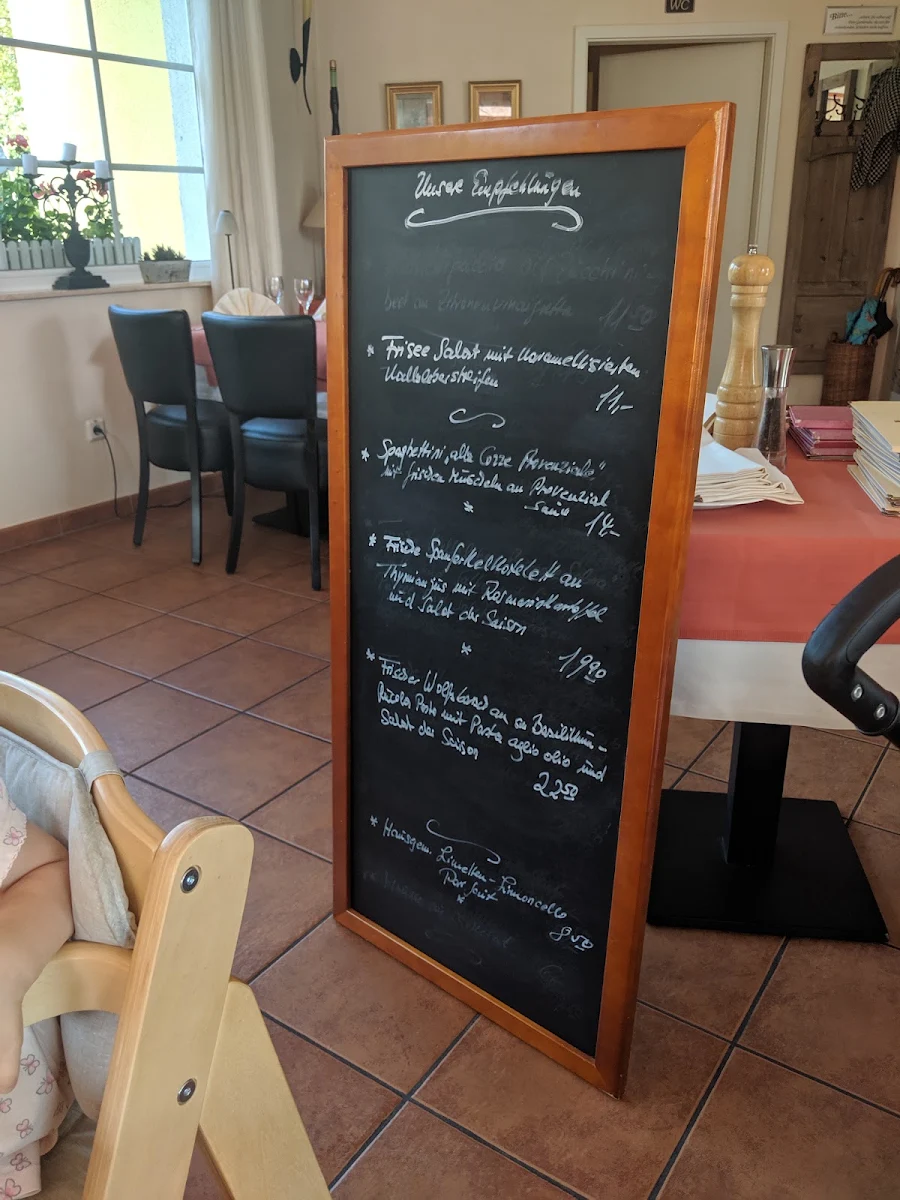 WC
Bitte
Unsere Empfehlungen
11 50
* Frisee Salat mit karamellisierten
Kalbsleberstreifen
11,-
* Spaghettini „alla Cozze Provenziale"
mit frischen Muscheln an Provenzial
Sauce 14,-
*
* Frische Spanferkelkotelett an
Thymianjus mit Rosmarinkartoffel
und Salat der Saison
* 19 90
* Frischer Wolfsbarsch an Basilikum-
Rucola Pesto mit Pasta aglio olio und
Salat der Saison
22 50
* Hausgem. Limetten-Limoncello
Parfait
* 8 50